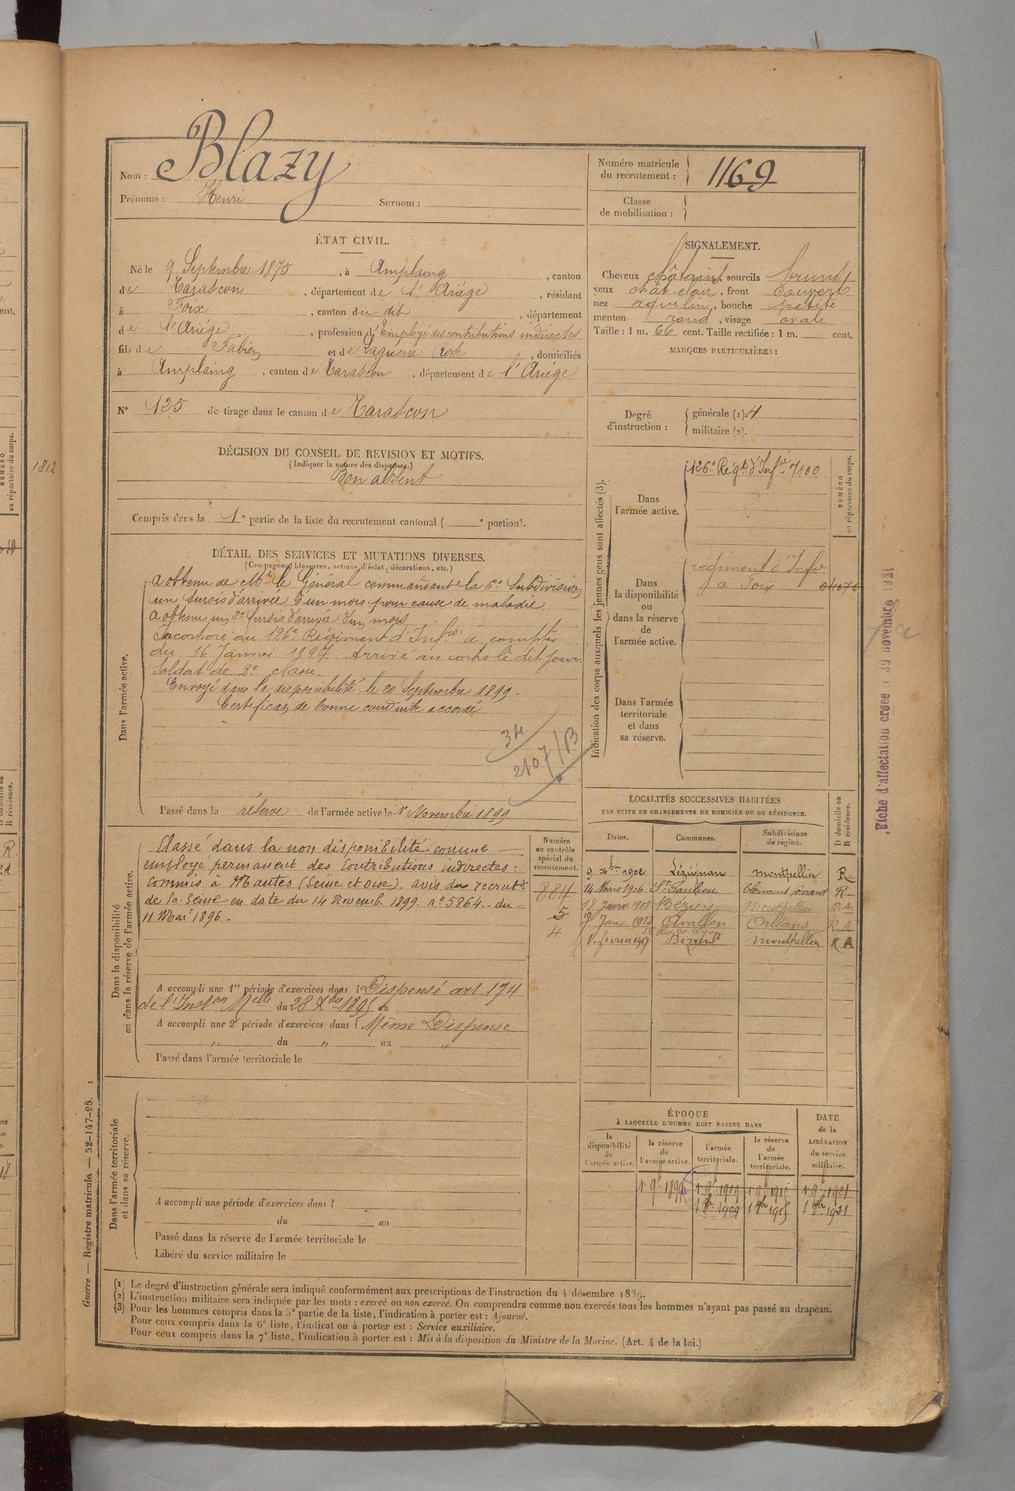 Nom : Blazy
Prénoms : Henri Surnom :
Numéro matricule du recrutement : 1169
Classe de mobilisation :
ÉTAT CIVIL.
Né le 9 Septembre 1875, à Amplaing, canton
de Tarascon, département de l'Ariége, résidant
à Foix, canton du dit, département
de l'Ariége, profession d'Employé des contributions indirectes
fils de Fabien et de Laguerre Rose, domiciliés
à Amplaing, canton de Tarascon, département de l'Ariége
N° 125 de tirage dans le canton de Tarascon
SIGNALEMENT.
Cheveux châtains, sourcils bruns
yeux chât. clair, front couvert
nez aquilin, bouche petite
menton rond, visage ovale
Taille : 1 m. 66 cent. Taille rectifiée : 1 m. cent.
MARQUES PARTICULIÈRES :
Degré d'instruction : générale (1). 4
militaire (2).
DÉCISION DU CONSEIL DE REVISION ET MOTIFS.
(Indiquer la nature des dispenses.)
Bon absent
Compris dans la 1e partie de la liste du recrutement cantonal ( e portion).
DÉTAIL DES SERVICES ET MUTATIONS DIVERSES.
(Campagnes, blessures, actions d'éclat, décorations, etc.)
Dans l'armée active.
A obtenu de Mr. le Général commandant la 6e Subdivision
un sursis d'arrivée d'un mois pour cause de maladie
A obtenu un 2e sursis d'arrivée d'un mois
Incorporé au 126e Régiment d'Infie à compter
du 16 Janvier 1897. Arrivé au corps le dit jour
Soldat de 2e classe.
Envoyé dans la disponibilité le 20 Septembre 1899.
Certificat de bonne conduite accordé
34
2107/B
Passé dans la réserve de l'armée active le 1r Novembre 1899
Indication des corps auxquels les jeunes gens sont affectés (3).
NUMÉRO au répertoire du corps.
Dans l'armée active.
126e Régt d'Infie 7100
Dans la disponibilité ou dans la réserve de l'armée active.
régiment d'Infie
à Foix
Dans l'armée territoriale et dans sa réserve.
Fiche d'affectation créée 30 novembre 1921
LOCALITÉS SUCCESSIVES HABITÉES
PAR SUITE DE CHANGEMENTS DE DOMICILE OU DE RÉSIDENCE.
Dates. Communes. Subdivisions de région. D domicile ou R résidence.
9 Xbre 1902 Lézignan Montpellier R
14 Mars 1906 St Saulieu Clermont R
18 Janv. 1908 Béziers Montpellier R A
9 Janv. 1912 Avallon Orléans R A
1r février Béziers Montpellier R A
Dans la disponibilité ou dans la réserve de l'armée active.
Numéro au contrôle spécial du recrutement.
884
5
4
Classé dans la non disponibilité comme
employé permanent des Contributions indirectes :
commis à Mantes (Seine et Oise). avis du recrutt
de la Seine en date du 14 Novemb. 1899 n° 5864. - du
11 Mai 1896 -
A accompli une 1re période d'exercices dans l Dispensé art. 174
de l'Inston Melle du 28 Xbre 1895 au
A accompli une 2e période d'exercices dans l Même Dispense
" du " au "
Passé dans l'armée territoriale le
Dans l'armée territoriale et dans sa réserve.
A accompli une période d'exercices dans l
du au
Passé dans la réserve de l'armée territoriale le
Libéré du service militaire le
ÉPOQUE
À LAQUELLE L'HOMME DOIT PASSER DANS
la disponibilité de l'armée active. la réserve de l'armée active. l'armée territoriale. la réserve de l'armée territoriale. DATE de la LIBÉRATION du service militaire.
1 9bre 1899 1 9bre 1909 1 9bre 1915 1 9bre 1921
1 8bre 1909 1 8bre 1915 1 8bre 1921
(1) Le degré d'instruction générale sera indiqué conformément aux prescriptions de l'instruction du 4 décembre 1889.
(2) L'instruction militaire sera indiquée par les mots : exercé ou non exercé. On comprendra comme non exercés tous les hommes n'ayant pas passé au drapeau.
(3) Pour les hommes compris dans la 5e partie de la liste, l'indication à porter est : Ajourné.
Pour ceux compris dans la 6e liste, l'indication à porter est : Service auxiliaire.
Pour ceux compris dans la 7e liste, l'indication à porter est : Mis à la disposition du Ministre de la Marine. (Art. 4 de la loi.)
Guerre — Registre matricule. — 52-147-95.
1812